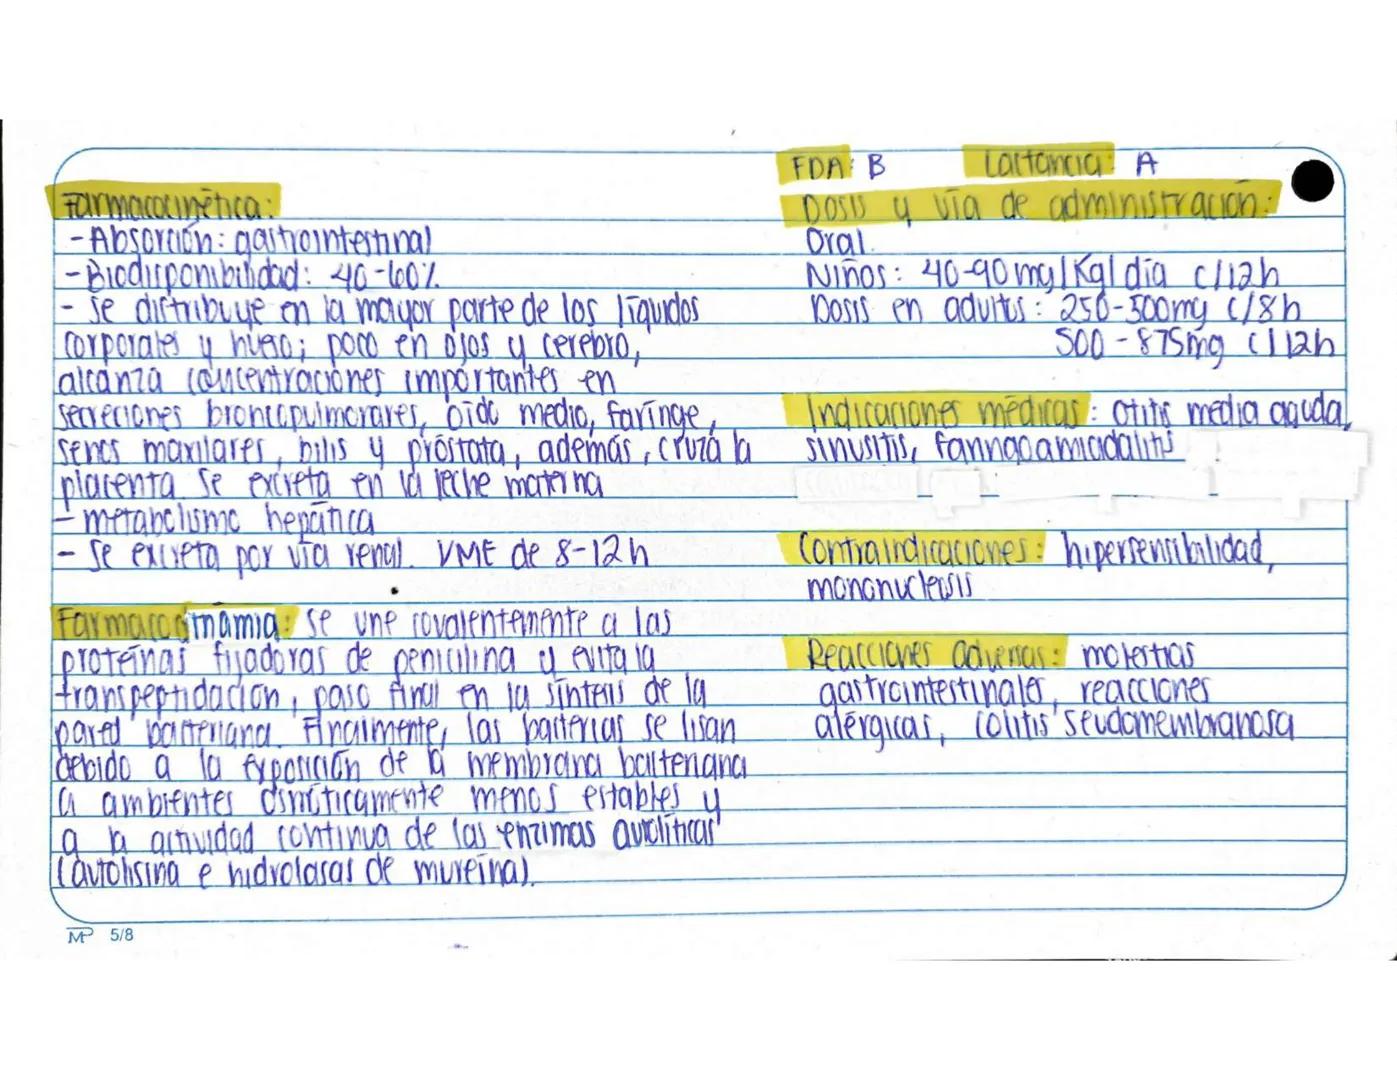 Farmacocinética:
- Absorción: gastrointestinal
- Biodisponibilidad: 40-60%
- Se distribuye en la mayor parte de los líquidos
corporales y hueso; poco en ojos y cerebro,
alcanza concentraciones importantes en
secreciones broncopulmorares, oído medio, faringe,
senos maxilares, bilis y próstata, además, cruza la
placenta. Se excreta en la leche materna
- metabolismo hepática
- Se excreta por vía renal. VME de 8-12h
Farmacodinamia: se une covalentemente a las
proteínas fijadoras de penicilina y evita la
transpeptidación, paso final en la síntesis de la
pared bacteriana. Finalmente, las bacterias se lisan
debido a la exposición de la membrana bacteriana
a ambientes osmóticamente menos estables y
a la actividad continua de las enzimas autolíticas
(autolisina e hidrolasas de mureína).
FDA: B Lactancia: A
Dosis y vía de administración:
Oral.
Niños: 40-90 mg/Kg/día c/12h
Dosis en adultos: 250-500mg c/8h
500-875mg c/12h
Indicaciones médicas: otitis media aguda,
sinusitis, faringoamigdalitis
Contraindicaciones: hipersensibilidad,
mononucleosis
Reacciones adversas: molestias
gastrointestinales, reacciones
alérgicas, colitis seudomembranosa
MP 5/8